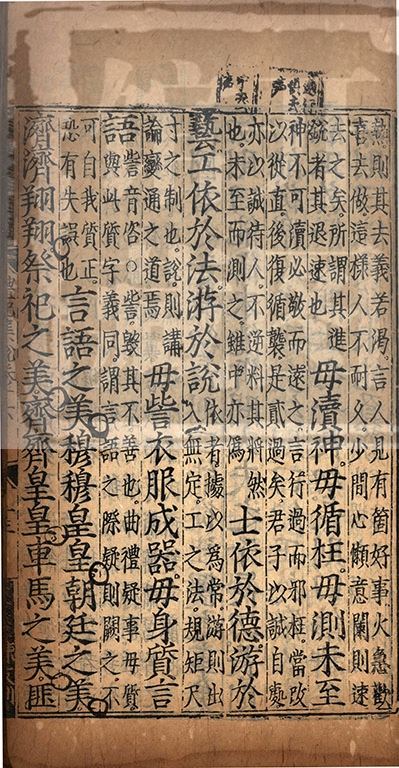 熱則其去義若渴言人見有箇好事火急歡
喜去做這樣人不耐久少間心懶意闌則速
去之矣所謂其進
銳者其退速也
毋瀆神毋循枉毋測未至
神不可瀆必敬而遠之言行過而邪枉當改
以從直後復循襲是貳過矣君子以誠自處
亦以誠待人不逆料其將然
也未至而測之雖中亦偽
士依於德游於
藝工依於法游於說
依者據以為常游則出
入無定工之法規矩尺
寸之制也說則講
論變通之道焉
毋訾衣服成器毋身質言
語
訾音咨○訾毀其不善也曲禮疑事毋質
與此質字義同謂言語之際疑則闕之不
可自我質正
恐有失誤也
言語之美穆穆皇皇朝廷之美
濟濟翔翔祭祀之美齊齊皇皇車馬之美匪